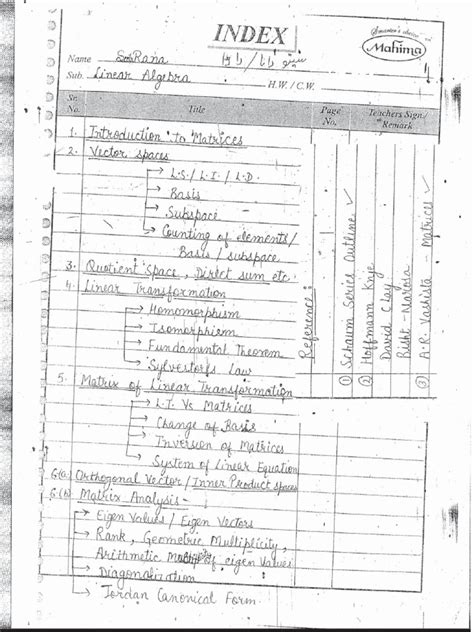 INDEX
Smarter's choice
Mahima
Name SRana
Sub. Linear Algebra
H.W. / C.W.
Sr. No. Title Page No. Teachers Sign/ Remark
1. Introduction to Matrices
2. Vector spaces
→ L.S/ L.I / L.D.
→ Basis
→ Subspace
→ Counting of elements/
Basis / subspace
3. Quotient Space, Direct sum etc.
4. Linear Transformation
→ Homomorphism
→ Isomorphism
→ Fundamental Theorem
→ Sylvestor's Law
5. Matrix of Linear Transformation
→ L.T. Vs Matrices
→ Change of Basis
→ Inversion of Matrices
→ System of Linear Equation
6(a) Orthogonal Vector / Inner Product spaces
6(b) Matrix Analysis -
→ Eigen Values / Eigen Vectors
→ Rank, Geometric Multiplicity,
Arithmetic of eigen Values
→ Diagonalization
→ Jordan Canonical Form.
Reference:
① Schaum Series Outline ✓
② Hoffmann Knje ✓
David C Lay
Risht - Narosa
③ A.R. Vashista - Matrices ✓